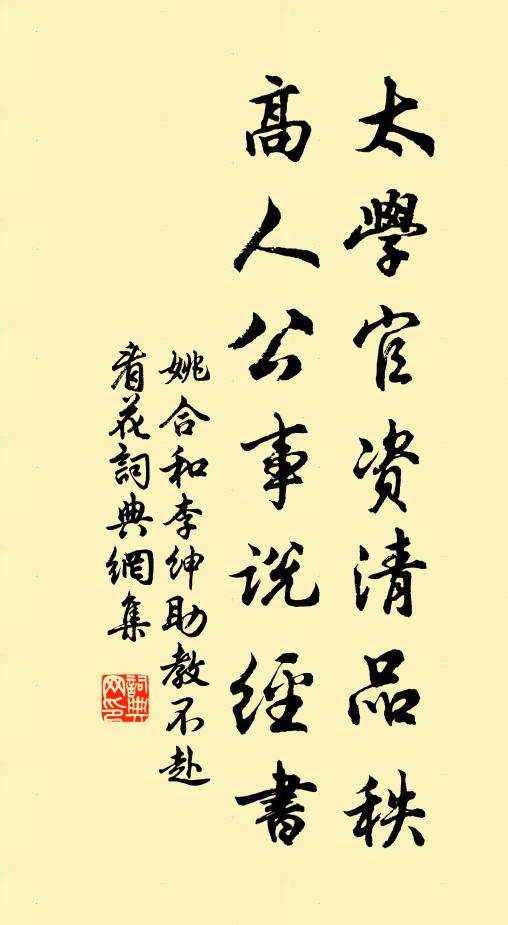 太學官资清品秩
高人公事说經書
姚合和李绅助教不赴
看花詞典網集
詞典网印